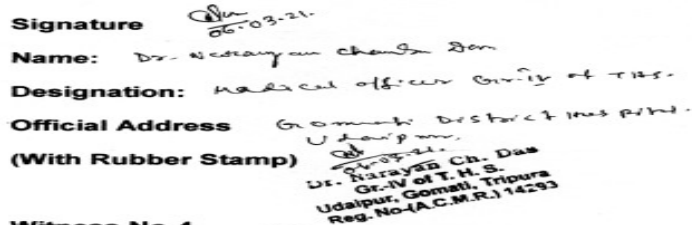 Signature
06-03-21.
Name: Dr. Narayan Chandra Das
Designation: Medical officer Gr-IV of THS.
Official Address Gomati District Hospital.
Udaipur.
(With Rubber Stamp)
06-03-21.
Dr. Narayan Ch. Das
Gr.-IV of T. H. S.
Udaipur, Gomati, Tripura
Reg. No-(A.C.M.R.) 14293
Witness No 1